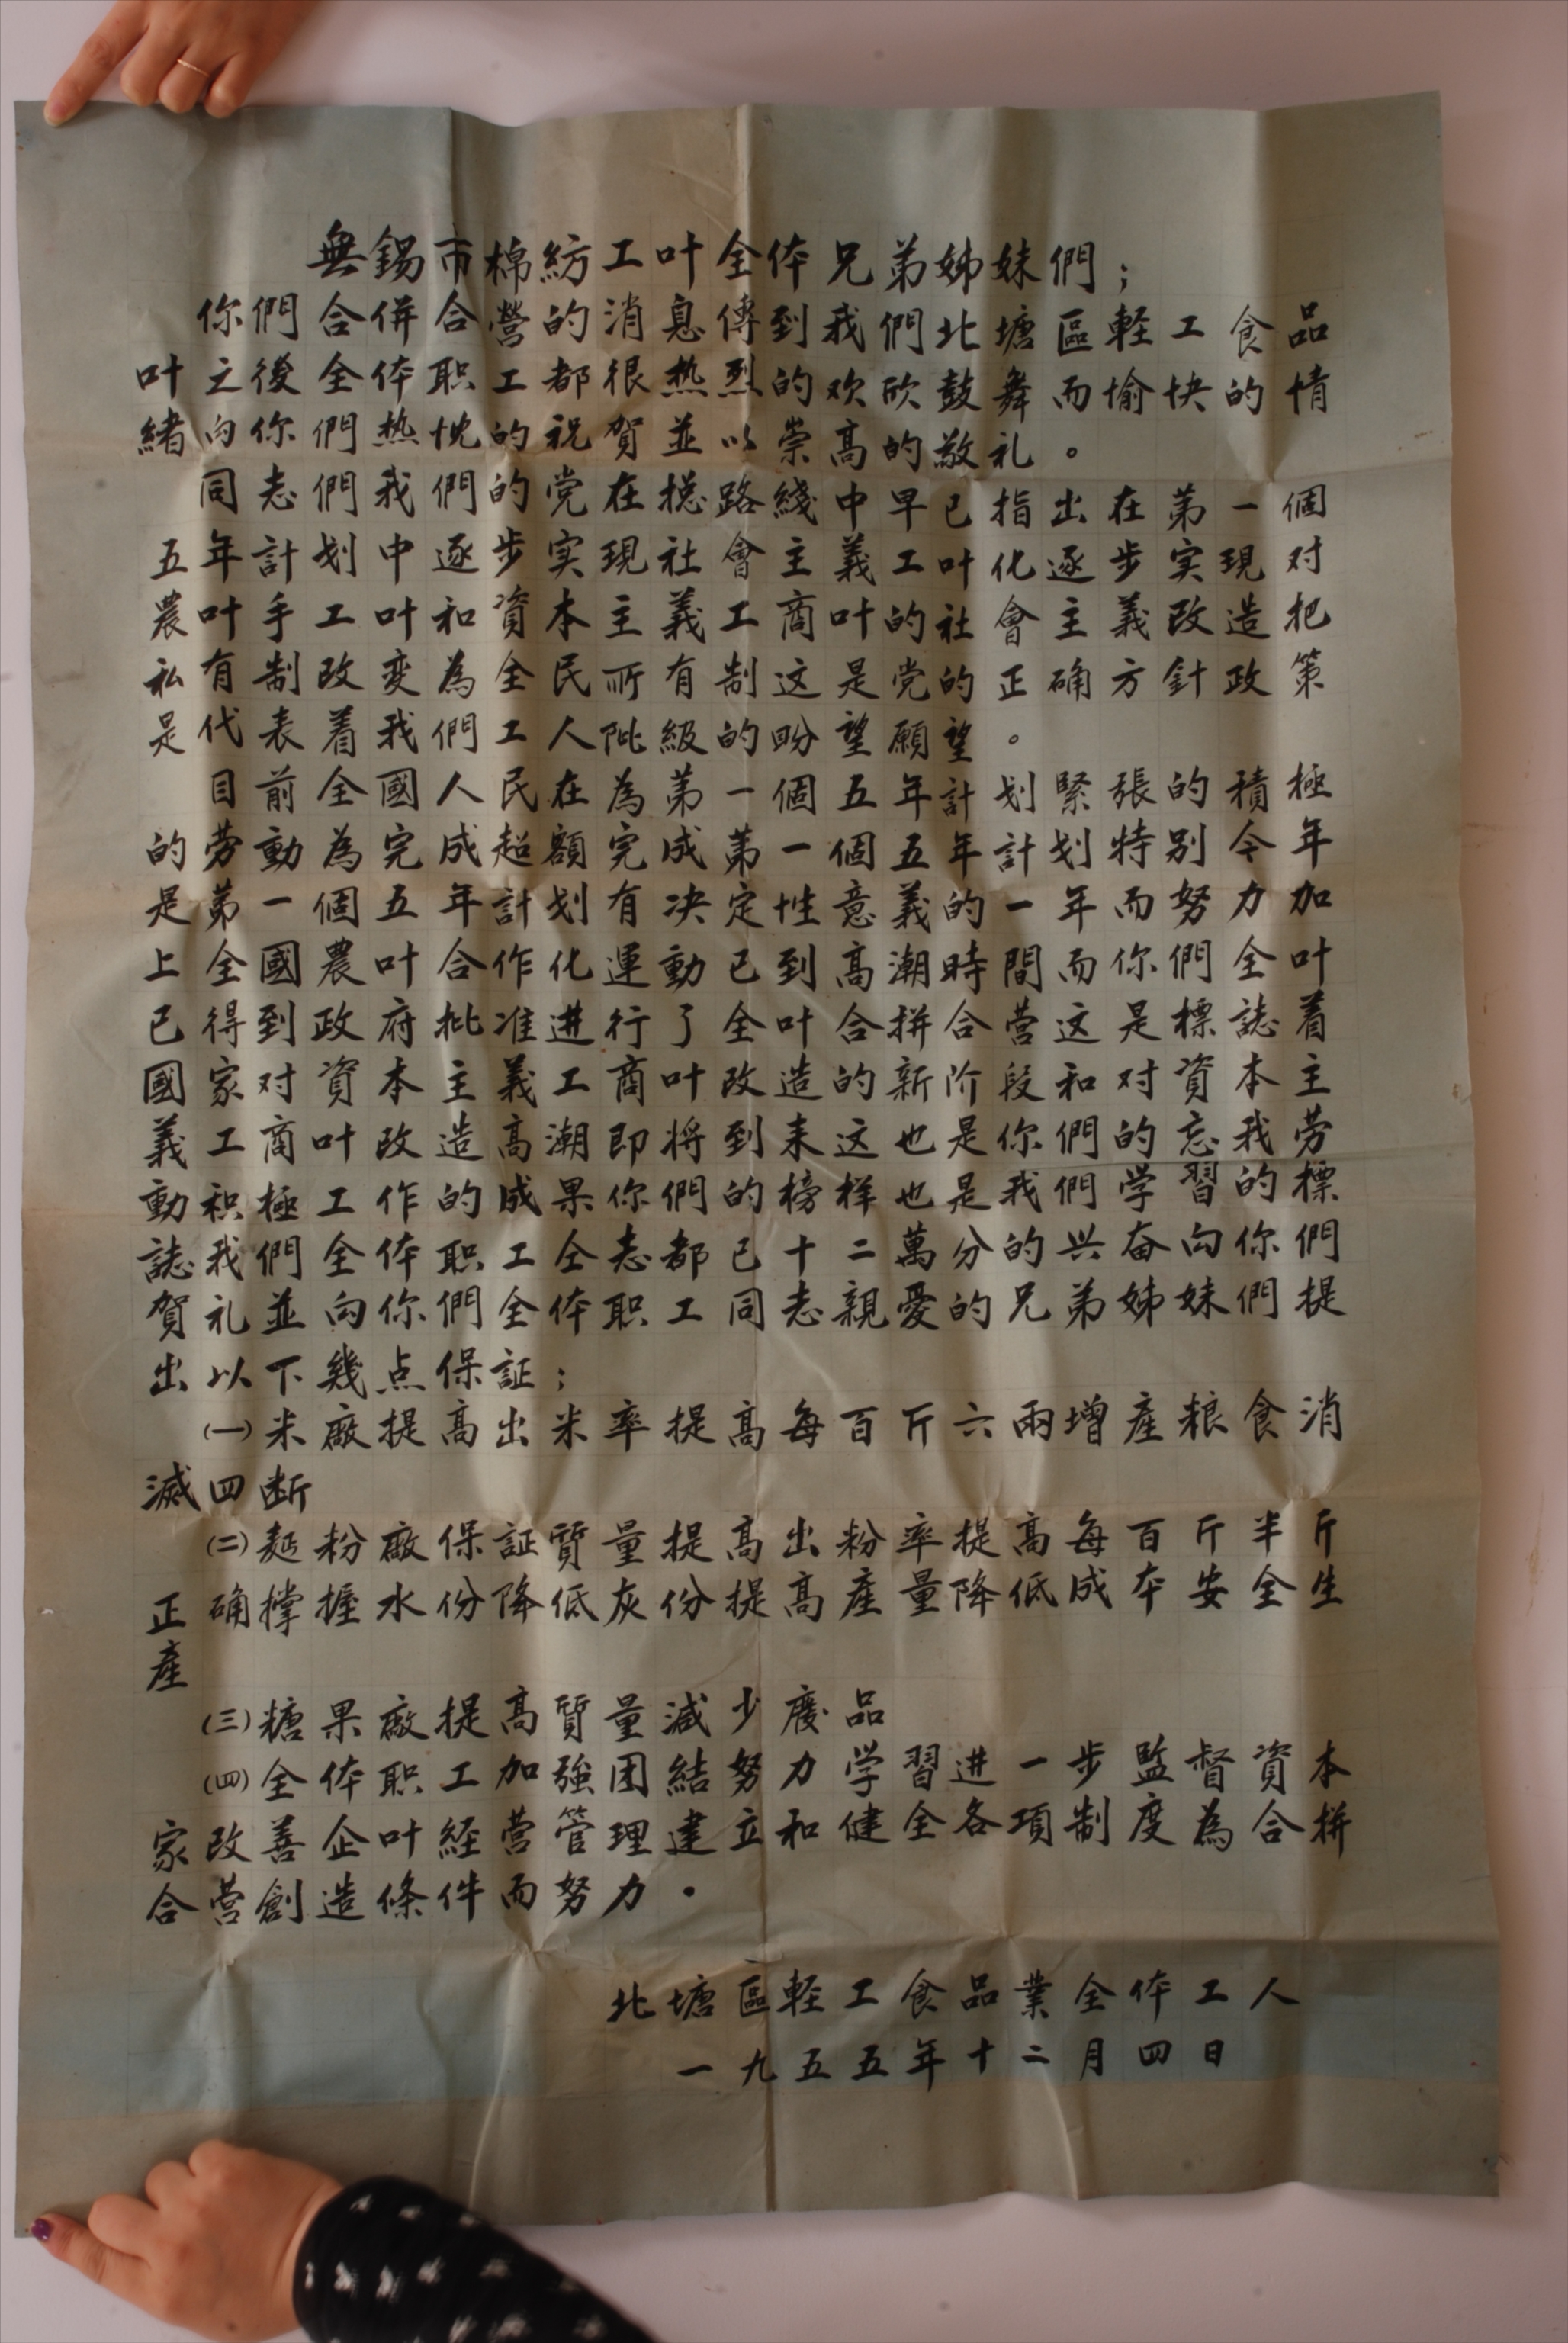 無錫市棉紡工叶全体兄弟姊妹們；
你們合併合營的消息傳到我們北塘區軽工食品
叶之後全体职工都很热烈的欢欣鼓舞而愉快的情
緒向你們热忱的祝賀並以崇高的敬礼。
同志們我們的党在捴路綫中早已指出在第一個
五年計划中逐步实現社會主義工叶化逐步实現对
農叶手工叶和資本主義工商叶的社會主義改造把
私有制改変為全民所有制这是党的正确方針政策
是代表着我們工人阶級的盼望願望。
目前全國人民在為第一個五年計划緊張的積極
的劳動為完成超額完成第一個五年計划特別今年
是第一個五年計划有决定性意義的一年而努力加
上全國農叶合作化運動已到高潮時間而你們全叶
已得到政府批准进行了全叶合拼合营这是標誌着
國家对資本主義工商叶改造的新阶段和对資本主
義工商叶改造高潮即将到来这也是你們的忘我劳
動积極工作的成果你們的榜样也是我們学習的標
誌我們全体职工仝志都已十二萬分的兴奋向你們
賀礼並向你們全体职工同志親愛的兄弟姊妹們提
出以下幾点保証；
㈠米廠提高出米率提高每百斤六兩增產粮食消
滅四断
㈡麪粉廠保証質量提高出粉率提高每百斤半斤
正确撑握水份降低灰份提高產量降低成本安全生
產
㈢糖果廠提高質量減少廢品
㈣全体职工加強团結努力学習进一步監督資本
家改善企叶経营管理建立和健全各項制度為合拼
合营創造條件而努力．
北塘區軽工食品業全体工人
一九五五年十二月四日